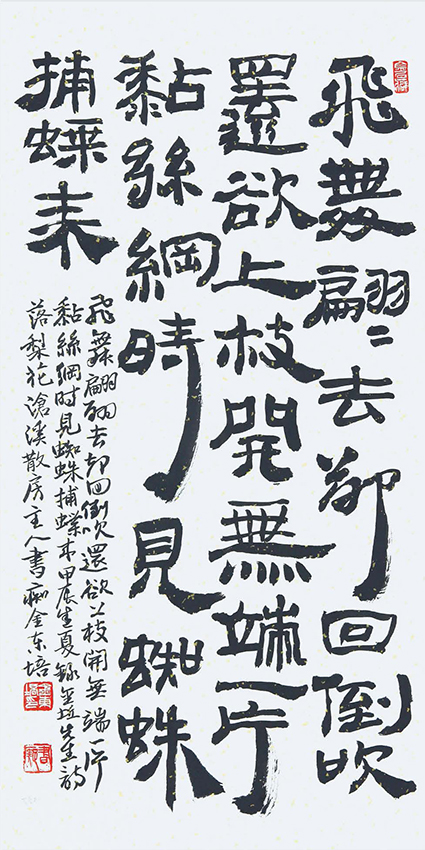 飛舞翩〻去卻回倒吹
還欲上枝開無端一片
黏絲綱時見蜘蛛
捕蝶來
飛舞翩翩去却回倒吹還欲上枝開無端一片
黏絲綱时見蜘蛛捕蝶来甲辰夏錄金坵先生詩
落梨花滄溪散房主人書痴金东培